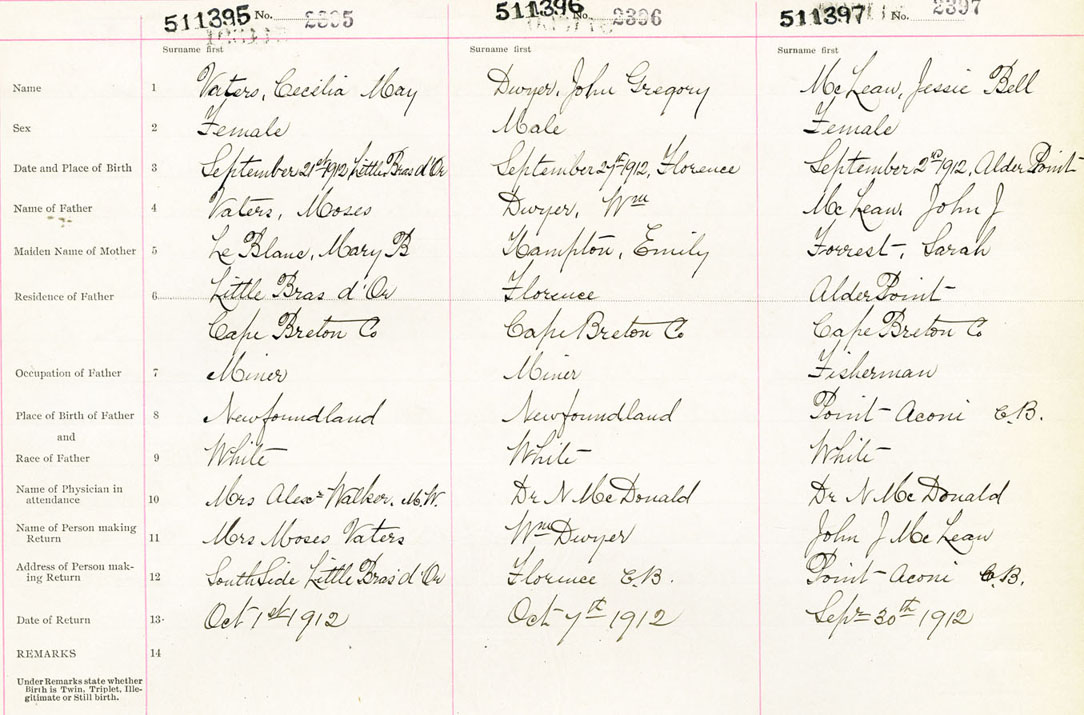 511395 No. 2395 511396 No. 2396 511397 No. 2397
Surname first Surname first Surname first
Name 1 Vaters, Cecelia May Dwyer, John Gregory McLean, Jessie Bell
Sex 2 Female Male Female
Date and Place of Birth 3 September 21st 1912 Little Bras d'Or September 27th 1912, Florence September 2nd 1912, Alder Point
Name of Father 4 Vaters, Moses Dwyer, Wm McLean, John J
Maiden Name of Mother 5 Le Blanc, Mary B Hampton, Emily Forrest, Sarah
Residence of Father 6 Little Bras d'Or Florence Alder Point
Cape Breton Co Cape Breton Co Cape Breton Co
Occupation of Father 7 Miner Miner Fisherman
Place of Birth of Father 8 Newfoundland Newfoundland Point Aconi C.B.
and
Race of Father 9 White White White
Name of Physician in
attendance 10 Mrs Alexr Walker, M.W. Dr N McDonald Dr N McDonald
Name of Person making
Return 11 Mrs Moses Vaters Wm Dwyer John J McLean
Address of Person mak-
ing Return 12 South Side Little Bras d'Or Florence C.B. Point Aconi C.B.
Date of Return 13. Oct 1st 1912 Oct 7th 1912 Sepr 30th 1912
REMARKS 14
Under Remarks state whether
Birth is Twin, Triplet, Ille-
gitimate or Still birth.